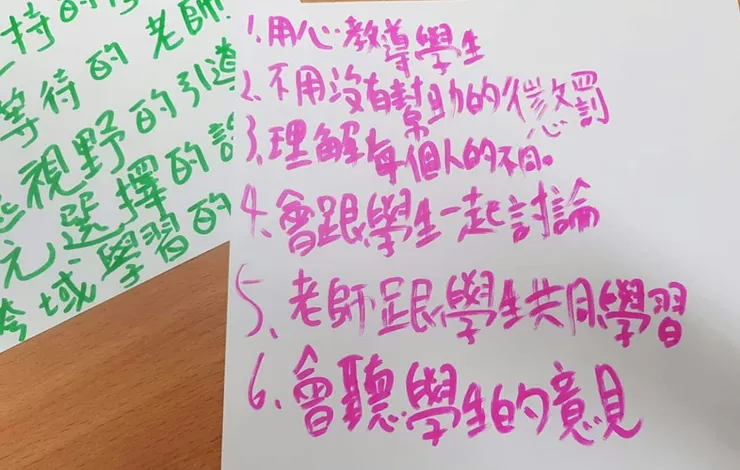 持的
等待的老師!
視野的引導
元選擇的
跨域學習的
1.用心教導學生
2.不用沒有幫助的懲罰
3.理解每個人的不同。
4.會跟學生一起討論
5、老師跟學生共同學習
6、會聽學生的意見